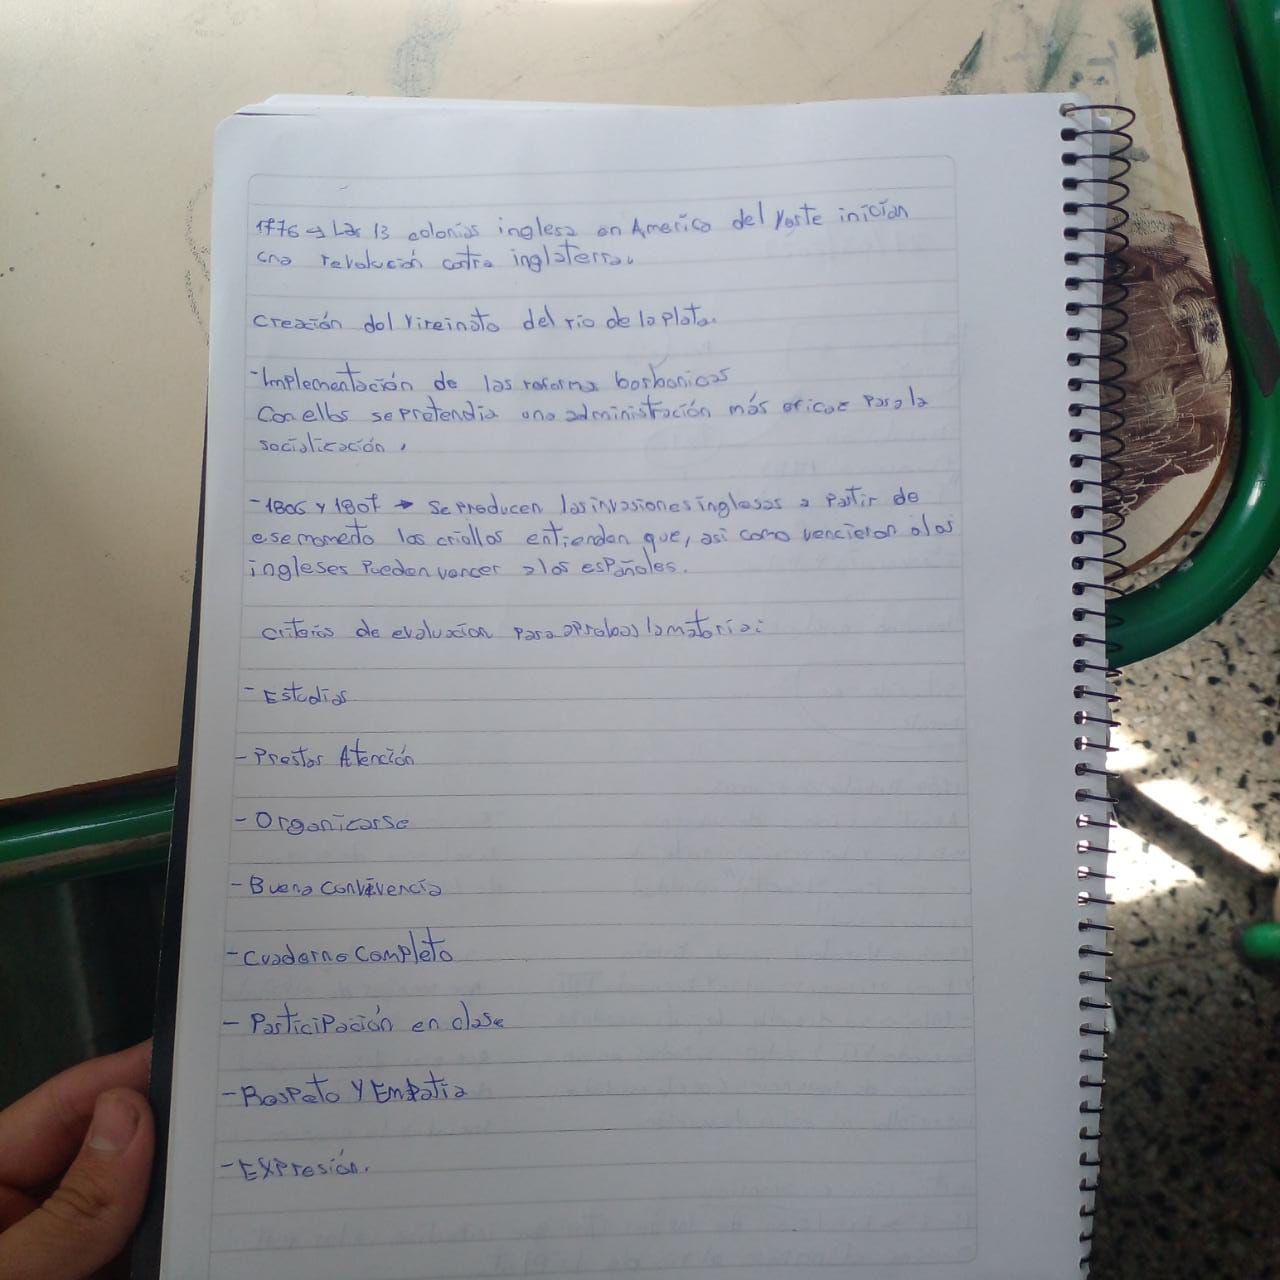 1776 → Las 13 colonias inglesa en America del Norte inician
una revolución contra inglaterra.
Creación del Vireinato del rio de la plata.
-Implementación de las reforma borbonicas
Con ellos se pretendia una administración más eficaz para la
socialización.
-1806 y 1807 → Se producen las invasiones inglesas a partir de
ese momento los criollos entienden que, asi como vencieron a los
ingleses pueden vencer a los españoles.
criterios de evaluacion para aprobar la materia:
- Estudias
- Prestar Atención
- Organizarse
- Buena convivencia
- Cuaderno completo
- Participación en clase
- Respeto y Empatia
- Expresión.